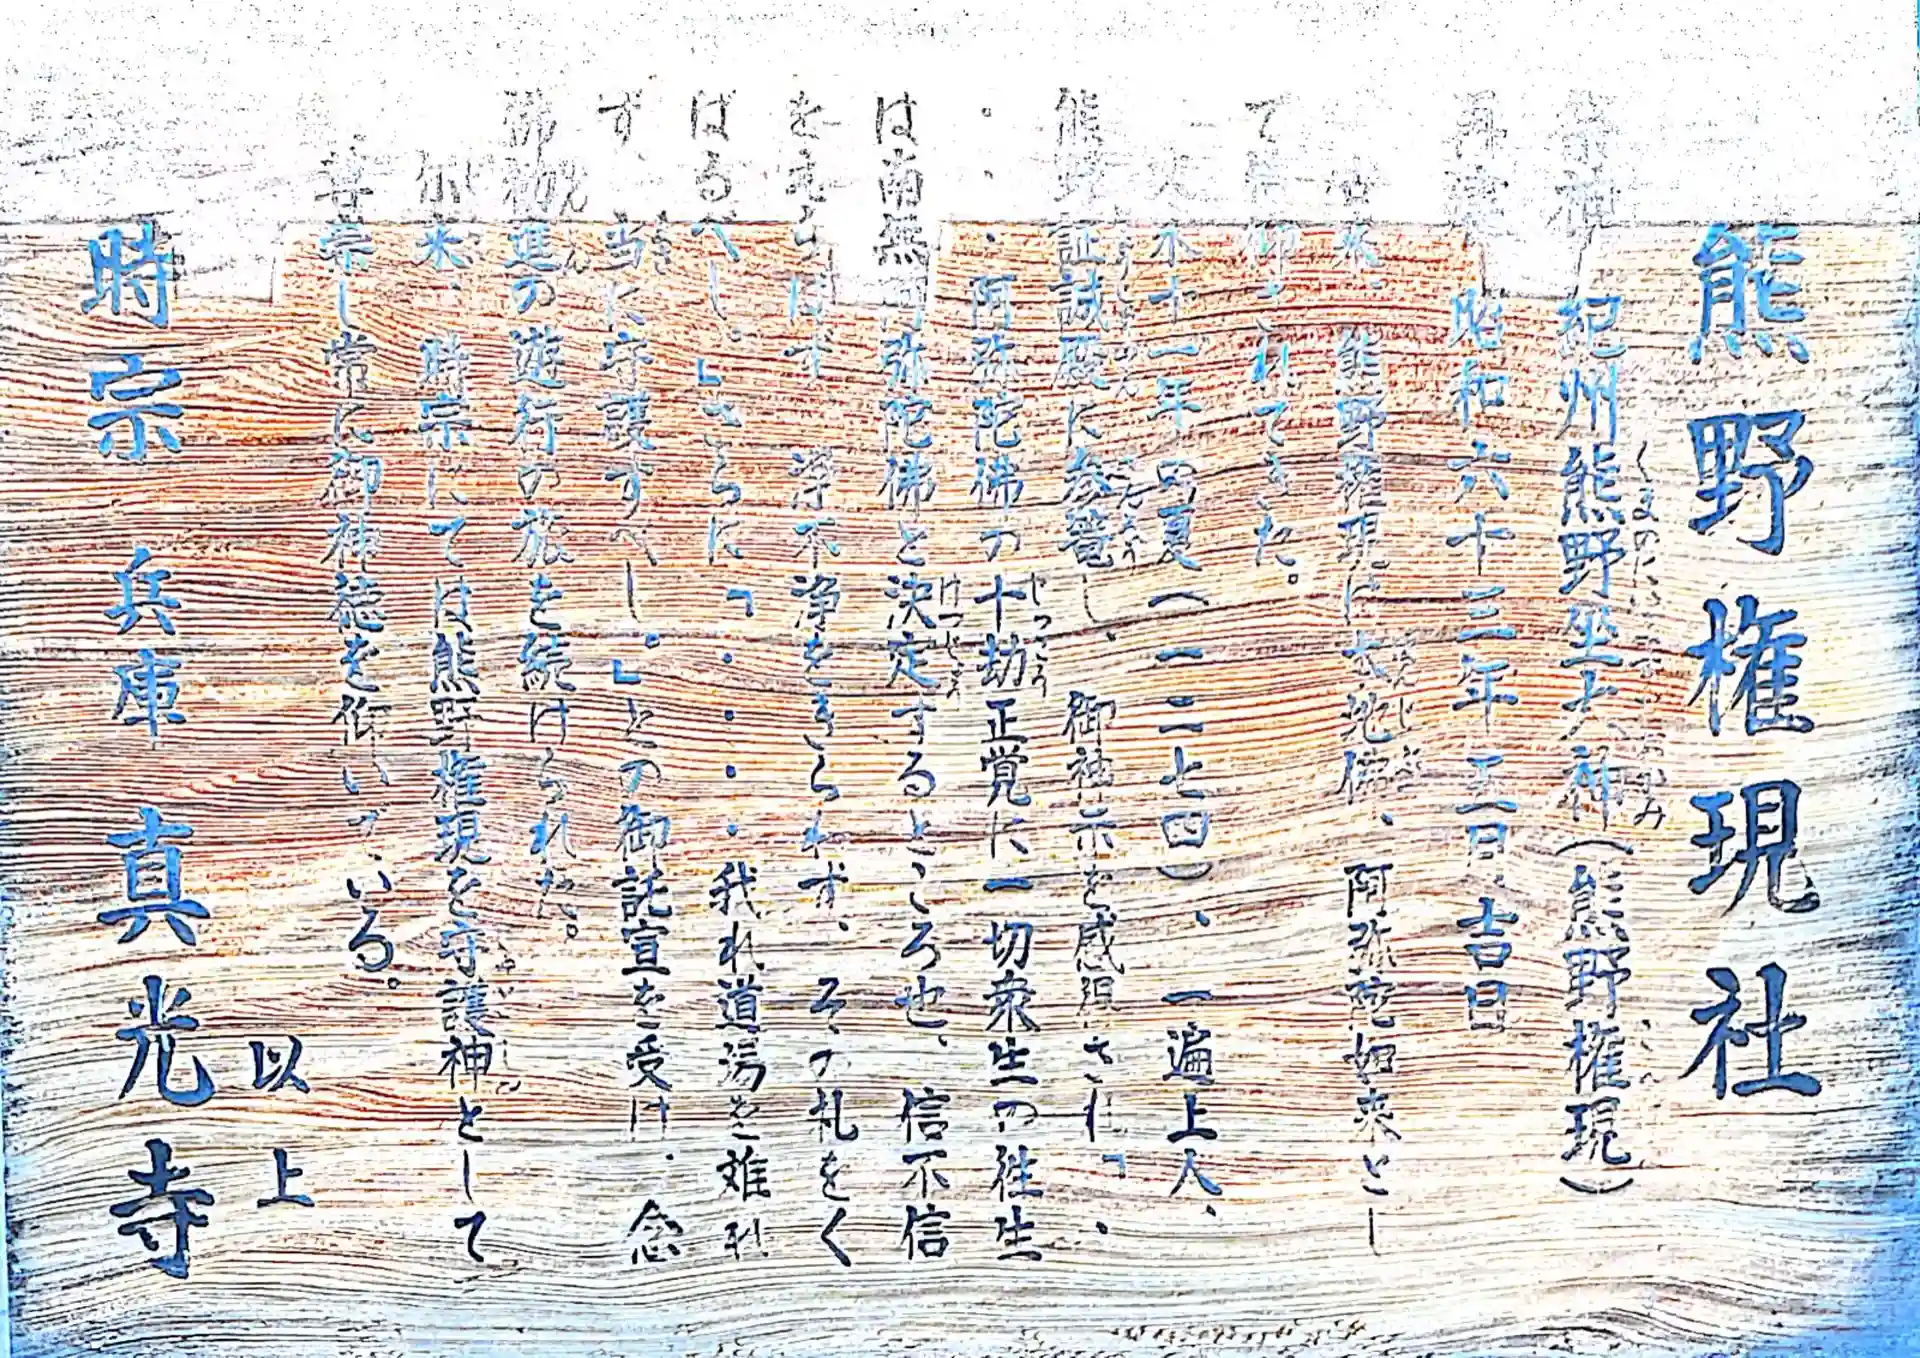 熊野権現社
祭神 紀州熊野坐大神(熊野権現)
再建 昭和六十三年 吉日
古来、熊野権現は 阿弥陀如来とし
て信仰されてきた。
文永十一年 夏(一二七四)、一遍上人、
熊野証誠殿に参籠し、御社示を感得され「・
・・・阿弥陀佛の十劫正覚に一切衆生の往生
は南無阿弥陀佛と決定するところ也、信不信
をえらばず 浄不浄をきらわず、その札をく
ばるべし。」さらに「・・・・我れ道場を難れ
ず、当に守護すべし。」との御託宣を受け、念
佛勧進の遊行の旅を続けられた。
尓来、時宗にては熊野権現を守護神として
し常に御神徳を仰いでいる。
以上
時宗 兵庫 真光寺